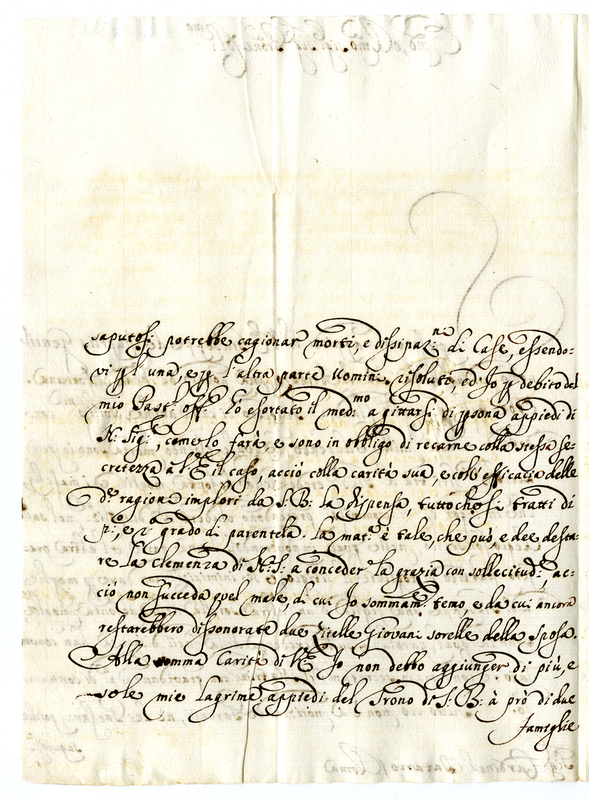 saputosi potrebbe cagionar morti, e dissipaz.ne di Case, essendo-
vi p l'una, e p l'altra parte Uomini risoluti, ed Io p debito del
mio Past.l off.o ho esortato il med.mo a gittarsi di psona appiedi di
N. Sig.e, come lo farà, e sono in obbligo di recarne colla stessa se-
cretezza à V.E. il caso, acciò colla carità sua, e coll'efficacia delle
d.e ragioni implori da S. B. la dispensa, tuttoche si tratti di
p.o, e 2.o grado di parentela. La mat.a è tale, che può, e dee desta-
re la clemenza di N. S. a conceder la grazia con sollecitud.e, ac-
ciò non succeda quel male, di cui Io sommam.e temo, e da cui ancora
restarebbero dissonorate due Zitelle Giovani sorelle della Sposa.
Alla somma Carità di V.E. Io non debbo aggiunger di più, e
sole mie lagrime appiedi del Trono di S. B. à prò di due
famiglie